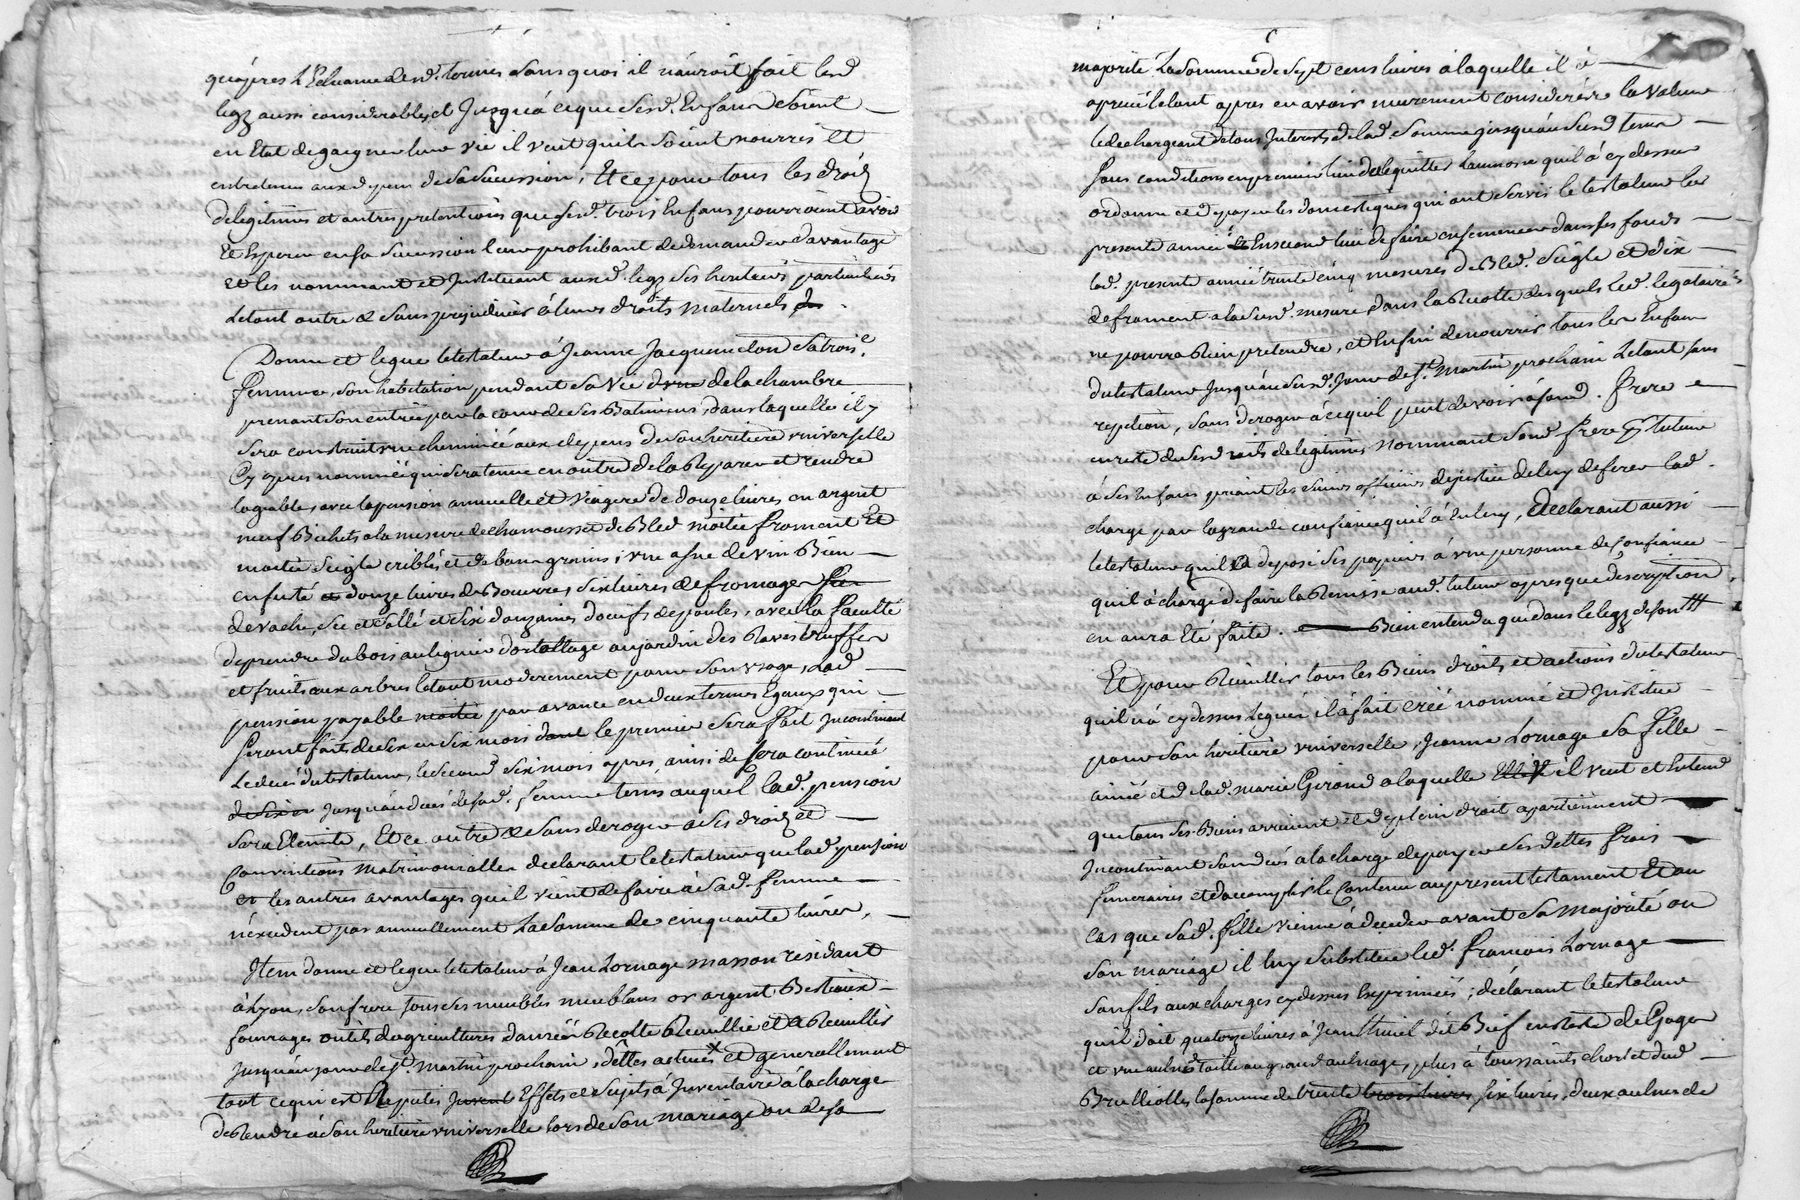 qu'apres l'Echeance des.d. termes sans quoi il n'auroit fait les.d
legz aussi considerables, et Jusqu'a ce que ses.d. Enfans soient
en Etat de gaigner leur vie il veut quils soient nourris et
entretenus aux depens de sa sucession, Et ce pour tous les droitz
de legitimes et autres pretentions que ses.d. trois Enfans pourroient avoir
et Esperer en sa sucession leur prohibant de demander davantage
et les nommant et Instituant aux.d. legz ses heritiers particuliers
le tout outre & sans prejudicier à leurs droits maternels
Donne et legue le testateur à Jeanne Jacquemeton sa trois.e
femme, son habitation pendant sa vie dvne de la chambre
prenant son entrée par la cour de ses Batimens, dans laquelle il y
sera construit vne cheminée aux depens de son heritiere vniverselle
Cy apres nommée qui sera tenue en outre de la Reparer et rendre
logeable, avec la pension annuelle et viagere de douze livres en argent
neuf Bichets a la mesure de chamousset de Bled moitié froment Et
moitié seigle criblés et de bons grains; vne asne de vin Bien
enfuté et douze livres de Bourre, six livres de fromage
de vache, sec et sallé et six douzaines d'oeufs de poules, avec la faculté
de prendre du bois au legnier d'ortollage au jardin des Raves truffes
et fruits aux arbres le tout moderement pour son vsage, Lad
pension payable moitié par avance en deux termes Egaux qui
seront faits de six en six mois dont le premier sera fait incontinent
Le deces du testateur, le second six mois apres, ainsi de sera continué
de six en jusqu'au deces de sad. femme tems auquel lad. pension
sera Eteinte, Et ce outre & sans deroger a ses droitz et
Conventions Matrimonialles declarant le testateur que lad. pension
et les autres avantages qu'il vient de faire à sad. femme
n'excedent pas annuellement La somme de cinquante livres,
Item donne et legue le testateur à Jean Lornage masson residant
à Lyon, son frere tous ses meubles meublans or argent Bestiaux
fourrages outils d'agricultures danrées Recolte Recuillie et à Recuillir
Jusqu'au jour de S.t Martin prochain, dettes actives et generallement
tout ce qui est Reputés Effets et sujets à Inventaire à la charge
de Rendre à son heritiere vniverselle lors de son mariage ou de sa
majorité La somme de sept cens livres a laquelle il à
aprecié le tout apres en avoir meurement consideré la valeur
le dechargeant de tous Interets de lad. somme jusqu'au susd terme
sous conditions en premier lieu de aquitter l'aumone qu'il à cy dessus
ordonné et de payer les domestiques qui ont servis le testateur les
presente année Ensecond lieu de faire ensemencer dans ses fonds
lad. presente année trente cinq mesures de Bled. Seigle et dix
de froment a la sus.d. mesure dans la Recolte desquels led. legataire
ne pourra Rien pretendre, et Enfin de nourrir tous les Enfans
du testateur jusqu'au susd. jour de S.t Martin prochain Le tout sans
repetion, sans deroger à ce qu'il peut devoir à sond. frere
en reste de ses droits de legitimes nommant sond. frere p.r tuteur
à ses Enfans priant les sieurs officiers de justice de luy deferer lad.
charge par la grande confiance qu'il à En luy, Declarant aussi
le testateur qu'il à deposé ses papiers à vne personne de confiance
qu'il à chargé de faire la Remisse aud. tuteur apres que description
en aura Eté faite. Bien entendu que dans le legz de son
Et pour Recuillir tous les Biens droits et actions du testateur
qu'il n'a cy dessus Legués il à fait créé nommé et Institue
pour son heritiere vniverselle, Jeanne Lornage sa fille
ainée et de lad. marie Giroud a laquelle il veut et Entend
que tous ses Biens arrivent et de plein droit apartiennent
Incontinant son deces a la charge de payer ses dettes frais
funeraires et d'accomplir le Contenu au present testament Et au
cas que sad. fille vienne à deceder avant sa Majorité ou
son mariage il luy substitue led. francois Lornage
son fils aux charges cy dessus Exprimées; declarant le testateur
qu'il doit quatorze livres à Jean thivel dit Bief en reste de Gages
et vne aulnes toille au grand aulnage, plus à toussaints
Brulliolles la somme de trente trois livres six livres, deux aulnes de